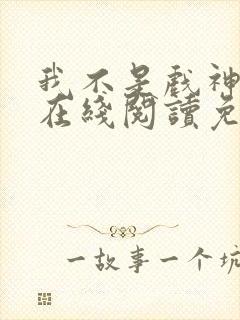 我不是戲神
在綫閱讀免
一故事一个坑